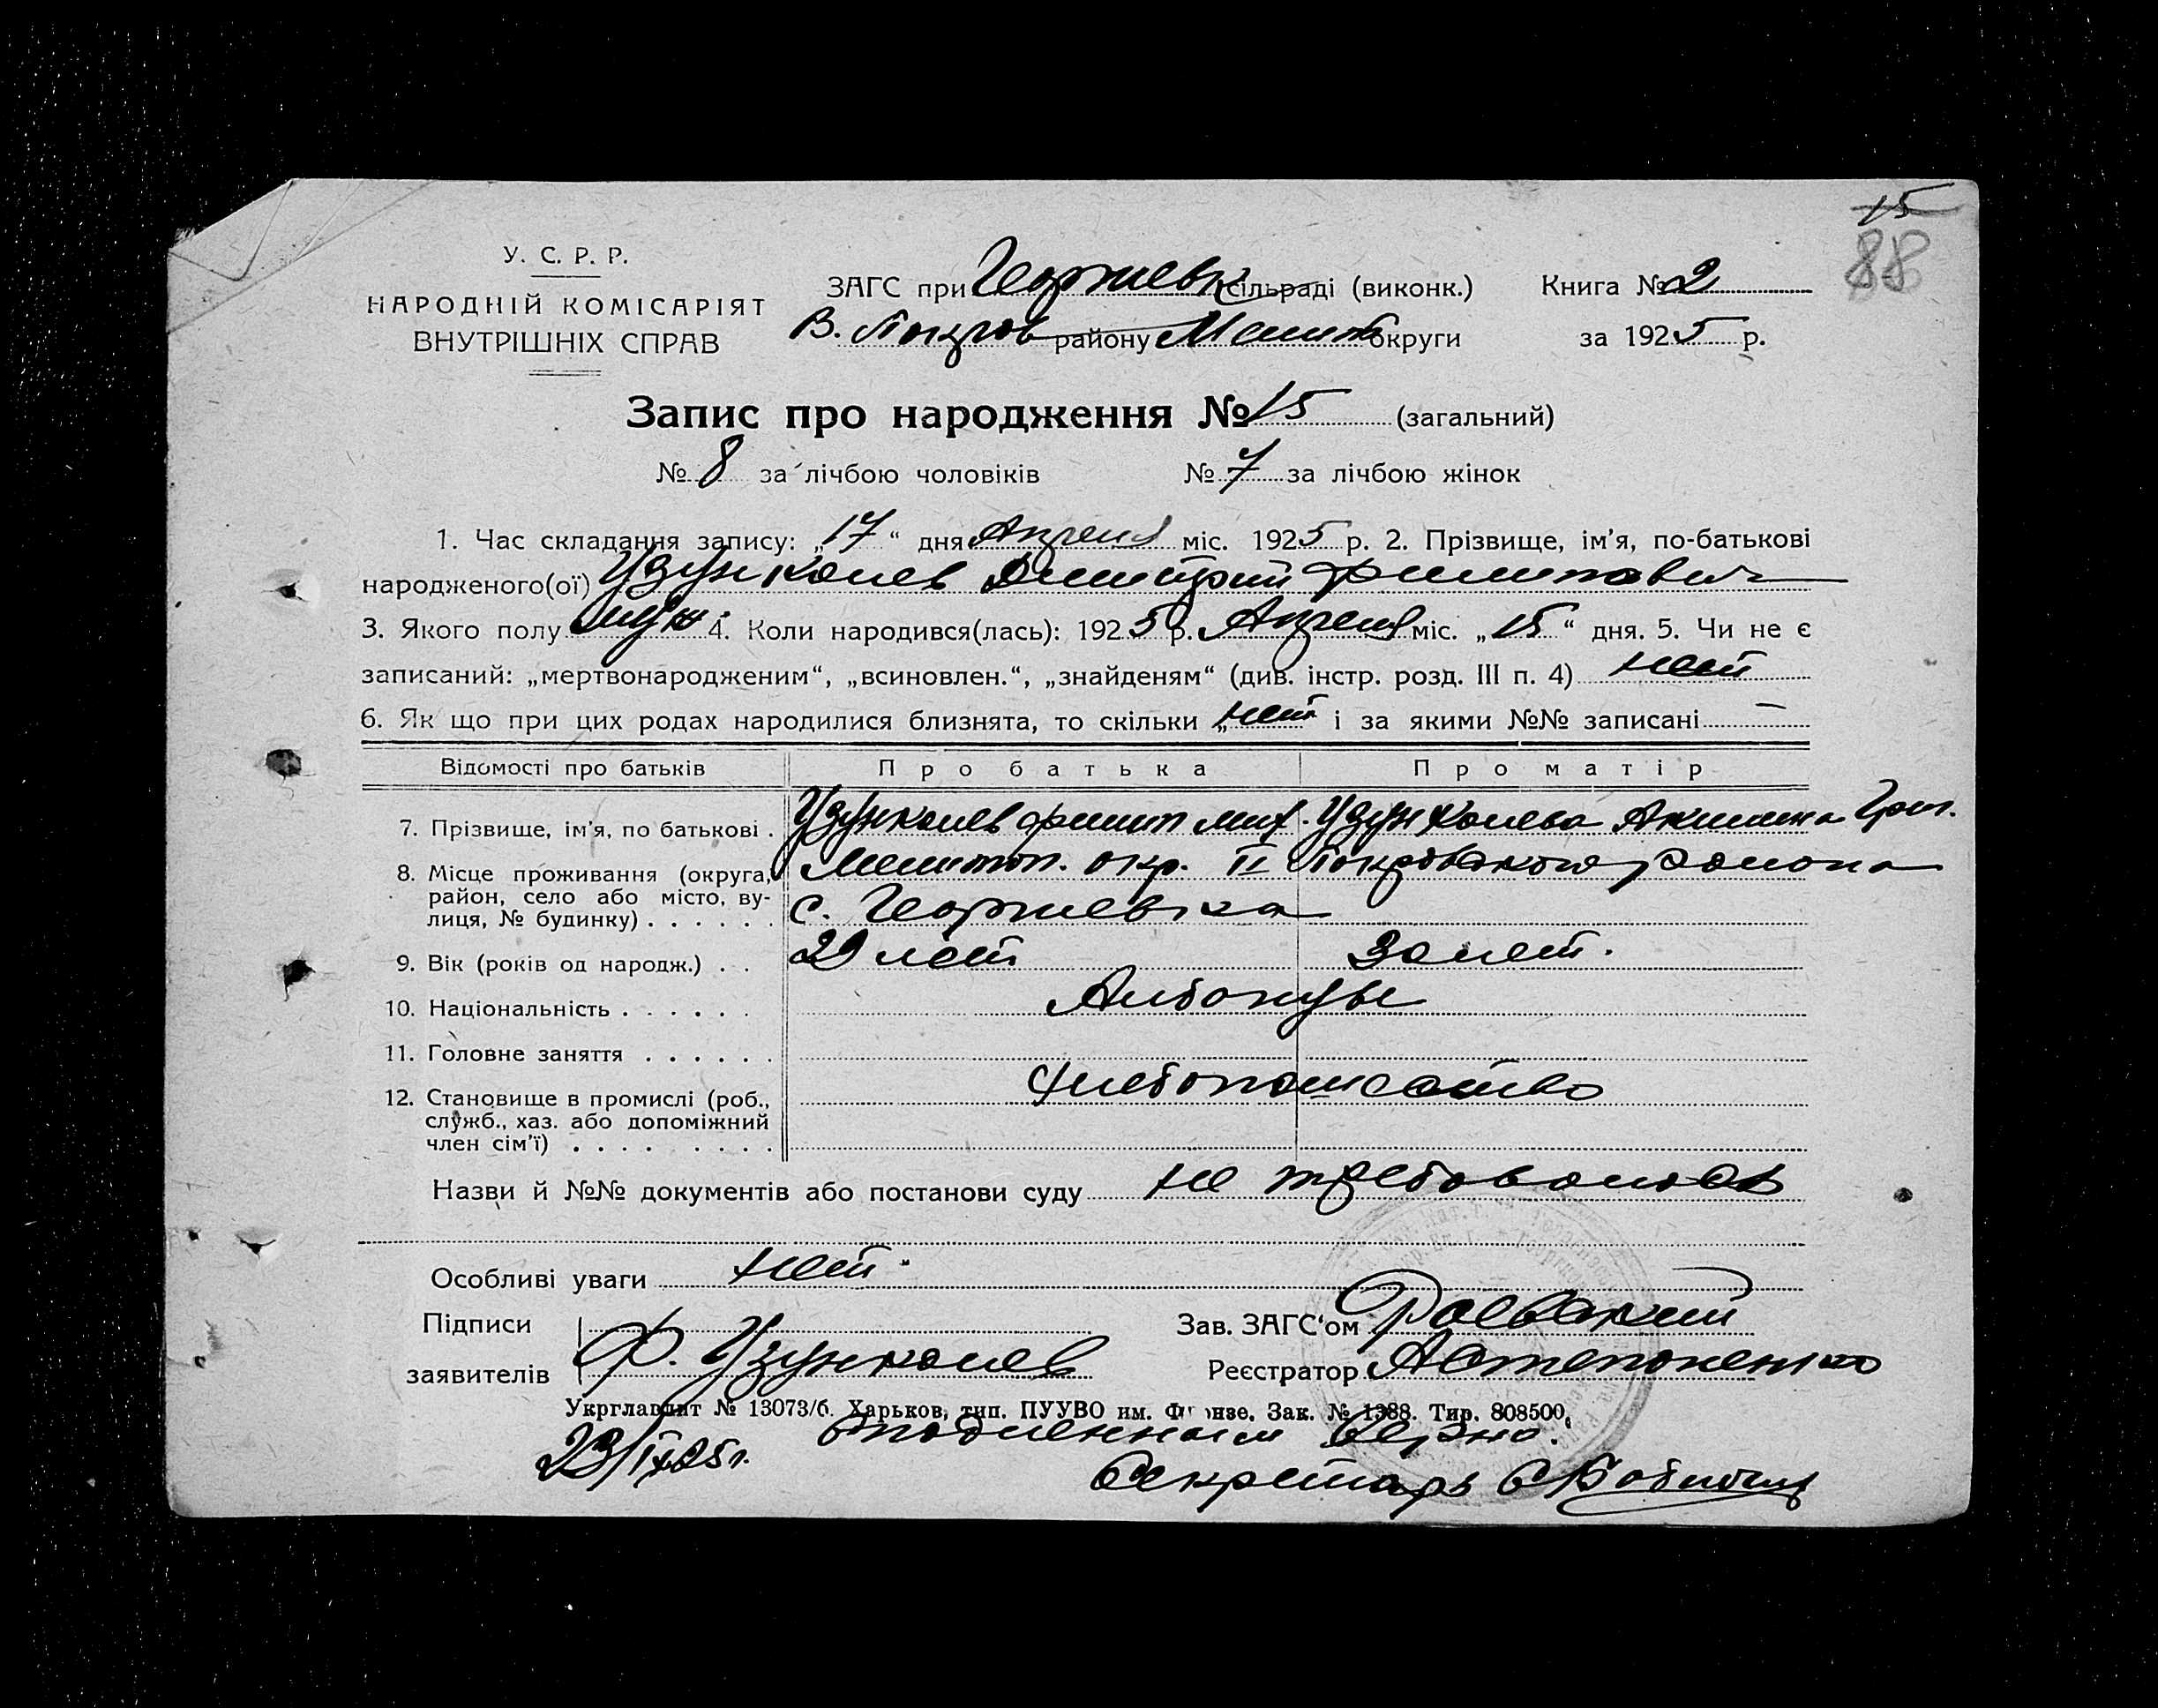 15
88
У. С. Р. Р.
НАРОДНІЙ КОМІСАРІЯТ
ВНУТРІШНІХ СПРАВ
ЗАГС при Георгиевк сільраді (виконк.)
В. Покров району Мелит округи
Книга № 2
за 1925 р.
Запис про народження № 15 (загальний)
№ 8 за лічбою чоловіків № 7 за лічбою жінок
1. Час складання запису: „17“ дня Апреля міс. 1925 р. 2. Прізвище, ім’я, по-батькові
народженого(ої) Узунколев Дмитрий Филипович
3. Якого полу муж. 4. Коли народився(лась): 1925 р. Апреля міс. „15“ дня. 5. Чи не є
записаний: „мертвонародженим“, „всиновлен.“, „знайденям“ (див. інстр. розд. III п. 4) нет
6. Як що при цих родах народилися близнята, то скільки „нет і за якими №№ записані —
Відомості про батьків Про батька Про матір
7. Прізвище, ім’я, по батькові . Узунколев Филип Мих. Узунколева Акилина Григ.
8. Місце проживання (округа, Мелитоп. окр. II Покровского района
район, село або місто, ву-
лиця, № будинку) . . . . . . с. Георгиевка
9. Вік (років од народж.) . . 29 лет 30 лет.
10. Національність . . . . . . Албанцы
11. Головне заняття . . . . . .
12. Становище в промислі (роб., хлебопашество
служб., хаз. або допоміжний
член сім’ї) . . . . . . . .
Назви й №№ документів або постанови суду не требовалось
Особливі уваги нет.
Підписи
заявителів Ф. Узунколев
Зав. ЗАГС‘ом Раевский
Реєстратор АСтепоненко
Укрглавлит № 13073/б. Харьков, тип. ПУУВО им. Фрунзе. Зак. № 1388. Тир. 808500.
С подленным верно.
23/IV 25 г.
Секретарь